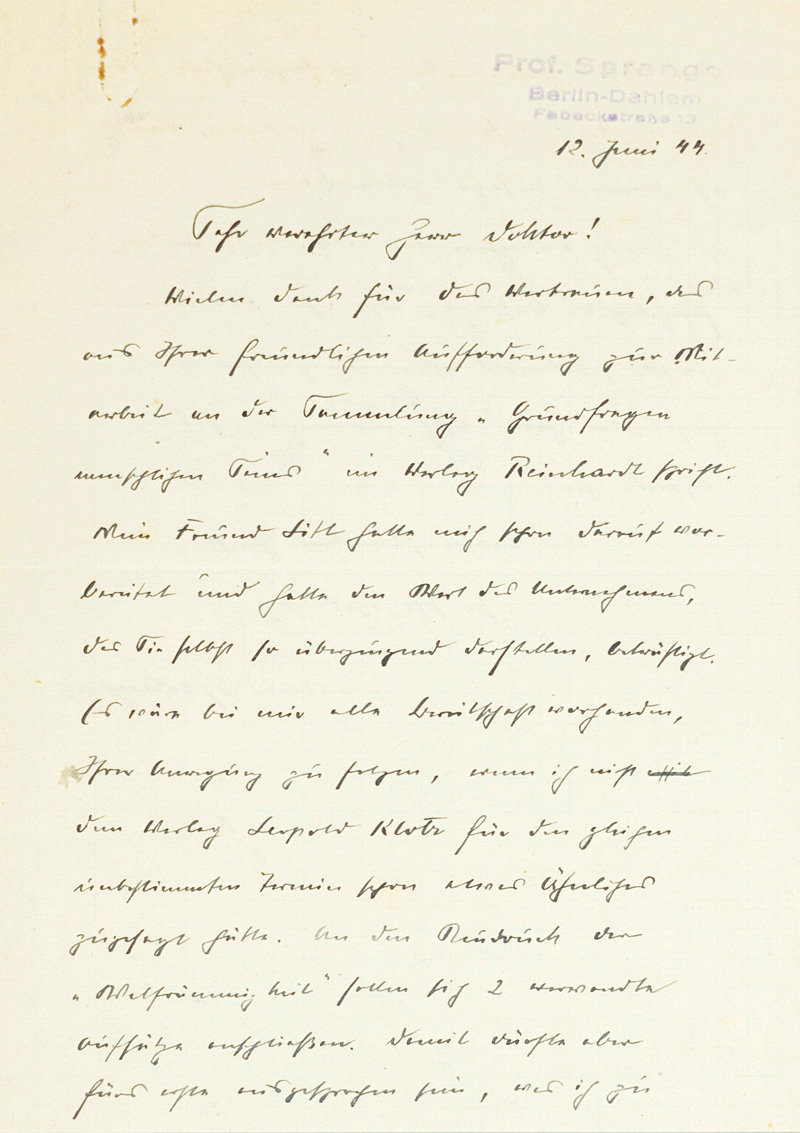 Prof. Spranger
Berlin-Dahlem
Fabeckstraße 13
12. Juni 44.
Sehr verehrter Herr Doktor!
Vielen Dank für das Vertrauen, das
aus Ihrer freundlichen Aufforderung zur Mit-
arbeit an der Sammlung „Grundfragen
menschlichen Seins" im Verlag Reinhardt spricht.
Mein Freund Litt hatte mich schon darauf vor-
bereitet und hatte den Wert des Unternehmens,
das Sie selbst so überzeugend darstellen, bekräftigt.
Es wäre bei mir alle Bereitschaft vorhanden,
Ihrer Anregung zu folgen, wenn ich nicht
dem Verlag Leopold Klotz für den gleichen
unbestimmten Termin schon etwas Ähnliches
zugesagt hätte. An den Neudruck der
„Weltfrömmigkeit" sollen sich 2 verwandte
Aufsätze anschließen. Damit dürfte aber
fürs erste ausgesprochen sein, was ich zu